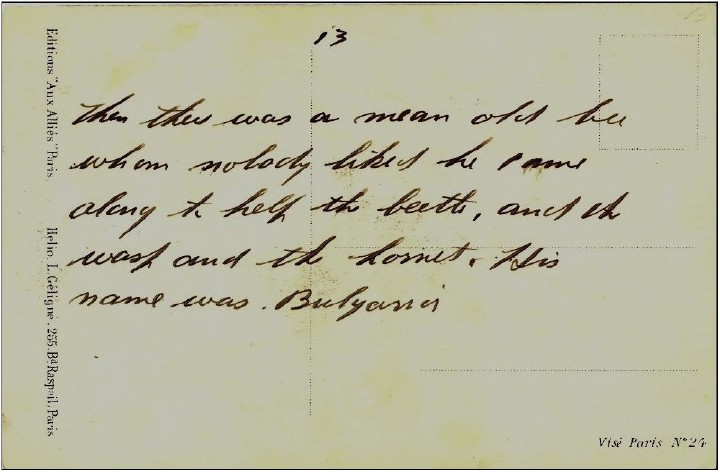 13
then ther was a mean old bee
whom nobody liked he came
along to help the beetle, and the
wasp and the hornet. His
name was. Bulgaria
Editions "Aux Alliés" Paris
Hélio. L. Géligné. 255. Bd Raspail, Paris
Visé Paris N° 24